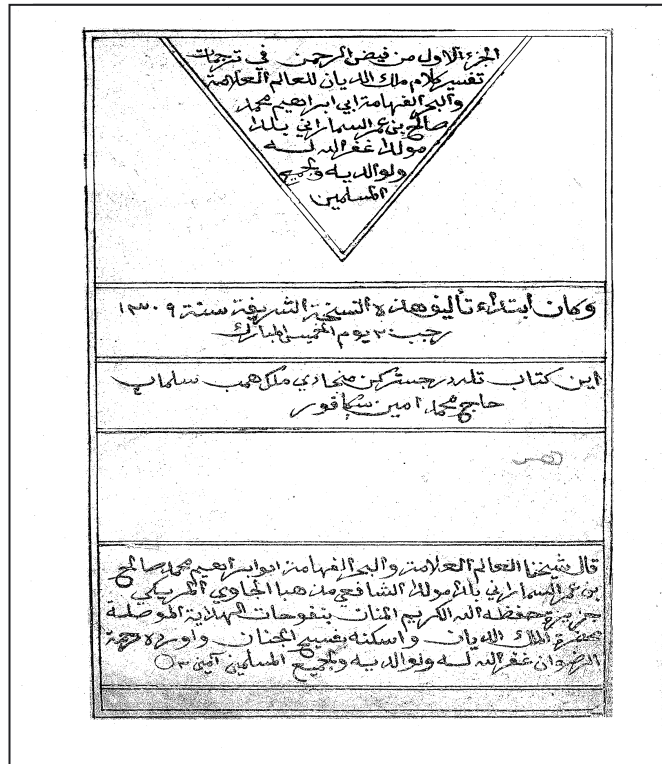 الجزء الاول من فيض الرحمن في ترجمات
تفسير كلام ملك الديان للعالم العلامة
والبحر الفهامة ابي ابراهيم محمد
صالح بن عمر السماراني بلدا
مولدا غفر الله له
ولوالديه ولجميع
المسلمين
وكان ابتداء تأليف هذه النسخة الشريفة سنة ١٣٠٩
رجب ٢٠ يوم الخميس المبارك
اين كتاب تله در جسترکن منجادي ملك همب سلمان
حاج محمد امين سڠافور
قال شيخنا العالم العلامة والبحر الفهامة ابو ابراهيم محمد صالح
بن عمر السماراني بلدا مولدا الشافعي مذهبا الجاوي المريكي
جزيرة حفظه الله الكريم المنان بنفوحات الهداية الموصلة
بحضرة الملك الديان واسكنه بفسيح الجنان واورده رحمة
الرضوان غفر الله له ولوالديه ولجميع المسلمين آمين ٣